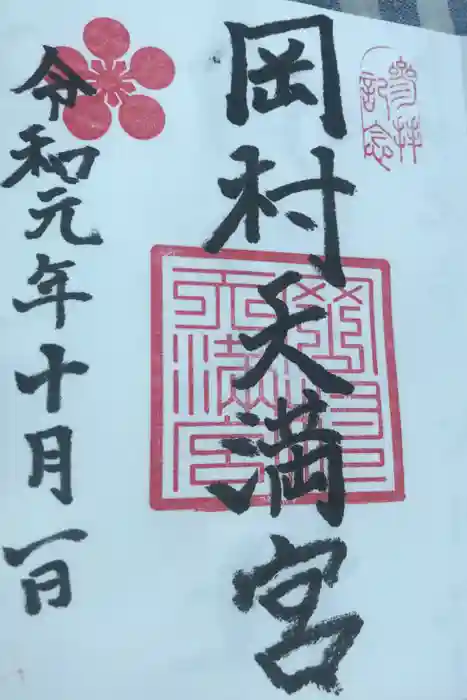 参拝
記念
岡村天満宮
令和元年十月一日